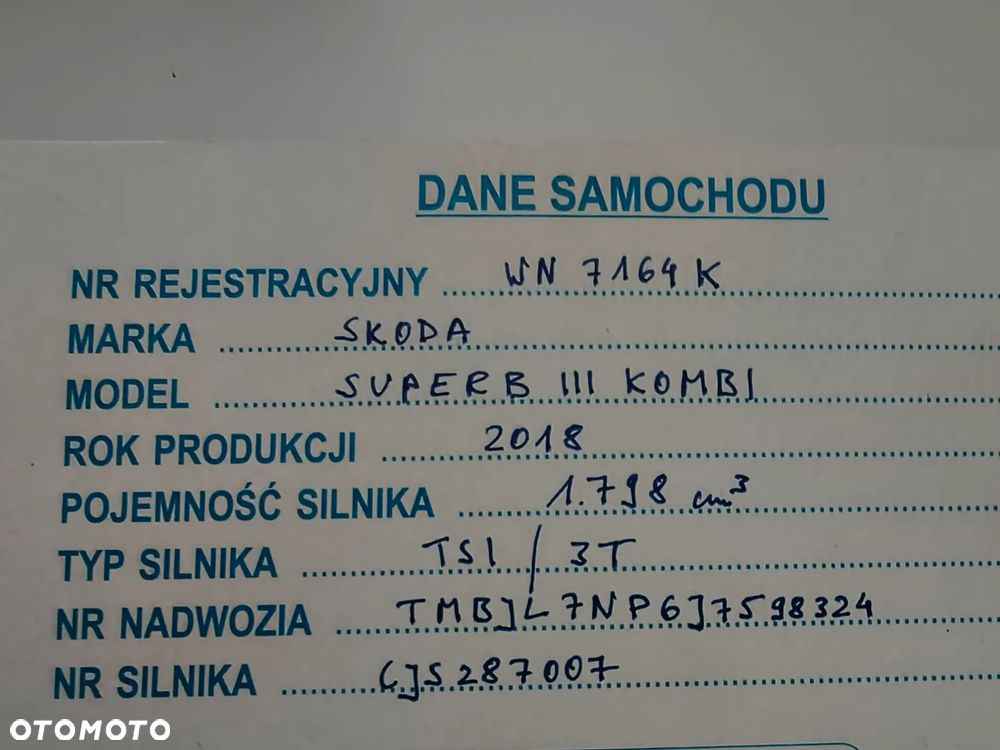 DANE SAMOCHODU
NR REJESTRACYJNY WN 7164K
MARKA SKODA
MODEL SUPERB III KOMBI
ROK PRODUKCJI 2018
POJEMNOŚĆ SILNIKA 1.798 cm³
TYP SILNIKA TSI / 3T
NR NADWOZIA TMBJL7NP6J7598324
NR SILNIKA CJS287007
OTOMOTO